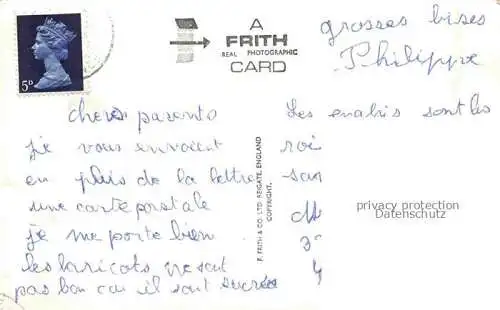 5D
A
FRITH
REAL PHOTOGRAPHIC
CARD
grosses bises
Philippe
chers parents
je vous envoient
en plus de la lettre
une carte postale
je me porte bien
les haricots ne sont
pas bon car il sont sucrée
F. FRITH & CO. LTD. REIGATE, ENGLAND
COPYRIGHT.
Les sont les
roi
san
privacy protection
Datenschutz